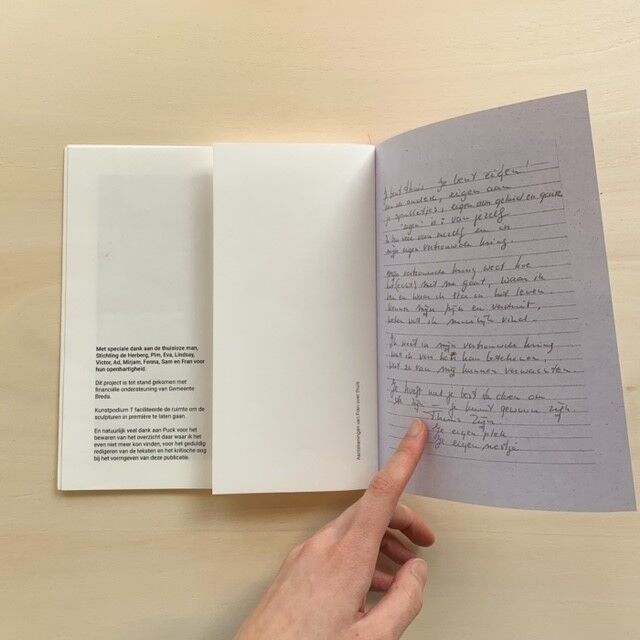 Met speciale dank aan de thuisloze man,
Stichting de Herberg, Pim, Eva, Lindsay,
Victor, Ad, Mirjam, Fenna, Sam en Fran voor
hun openhartigheid.
Dit project is tot stand gekomen met
financiële ondersteuning van Gemeente
Breda.
Kunstpodium T faciliteerde de ruimte om de
sculpturen in première te laten gaan.
En natuurlijk veel dank aan Puck voor het
bewaren van het overzicht daar waar ik het
even niet meer kon vinden, voor het geduldig
redigeren van de teksten en het kritische oog
bij het vormgeven van deze publicatie.
Aantekeningen van Fran over thuis
Je bent thuis je bent eigen!
eigen aan
je spulletjes, eigen aan gebied en
"eigen" is van jezelf
van mezelf en
mijn eigen vertrouwde kring
Mijn vertrouwde kring weet hoe
het met me gaat, waar ik
ben en waar ik sta en hoe leven
kennen mijn pijn en
weten wat ik
Ik weet in mijn vertrouwde kring
wat ik van hen
wat ze van mij kunnen verwachten
Je hoeft niet je best te doen om
je kunt gewoon zijn
Thuis zijn
Je eigen plek
Je eigen nestje